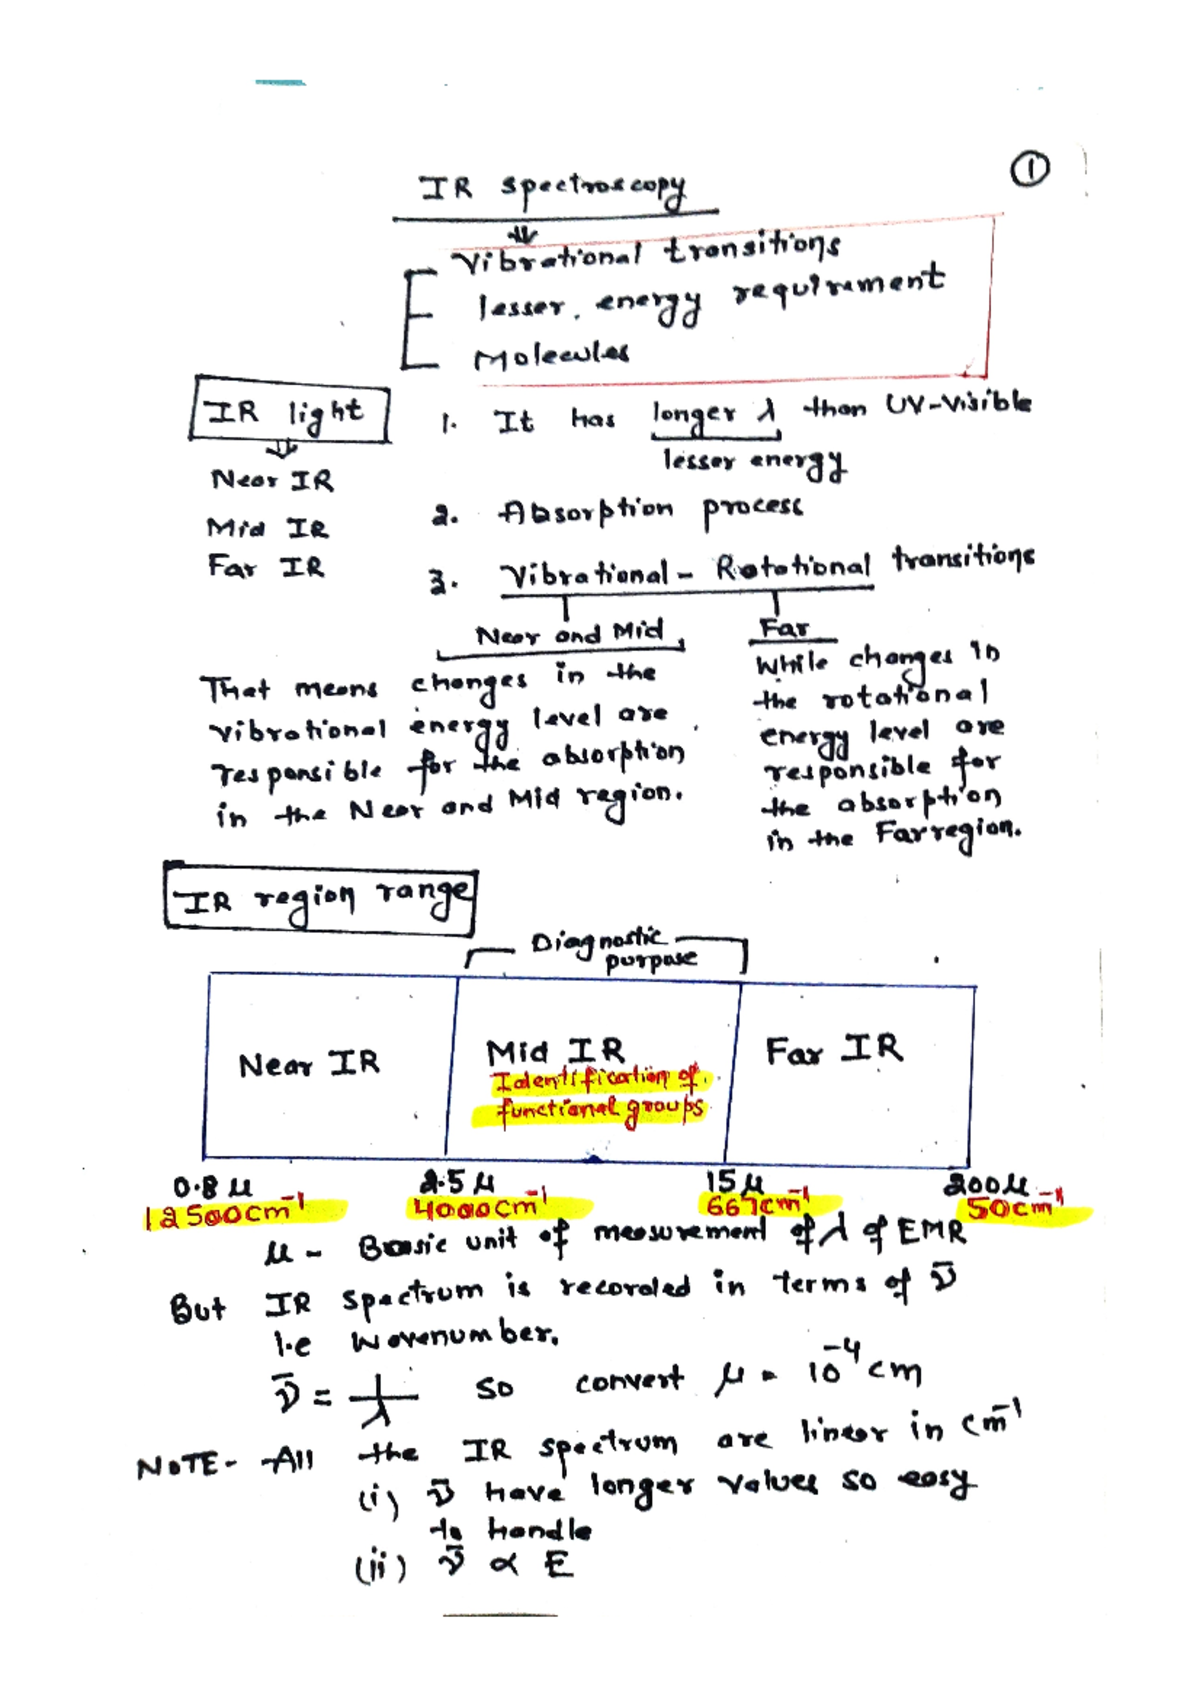 ①
IR spectroscopy
Vibrational transitions
lesser energy requirement
Molecules
IR light
Near IR
Mid IR
Far IR
1. It has longer λ than UV-Visible
lesser energy
2. Absorption process
3. Vibrational - Rotational transitions
Near and Mid
That means changes in the
vibrational energy level are
responsible for the absorption
in the Near and Mid region.
Far
While changes in
the rotational
energy level are
responsible for
the absorption
in the Far region.
IR region range
Diagnostic
purpose
Near IR
Mid IR
Identification of
functional groups
Far IR
0.8 μ 2.5 μ 15 μ 200 μ
12500cm⁻¹ 4000cm⁻¹ 667cm⁻¹ 50cm⁻¹
μ - Basic unit of measurement of λ of EMR
But IR spectrum is recorded in terms of ν̅
i.e Wavenumber.
ν̅ = 1/λ so convert μ = 10⁻⁴ cm
NOTE- All the IR spectrum are linear in cm⁻¹
(i) ν̅ have longer values so easy
to handle
(ii) ν̅ ∝ E